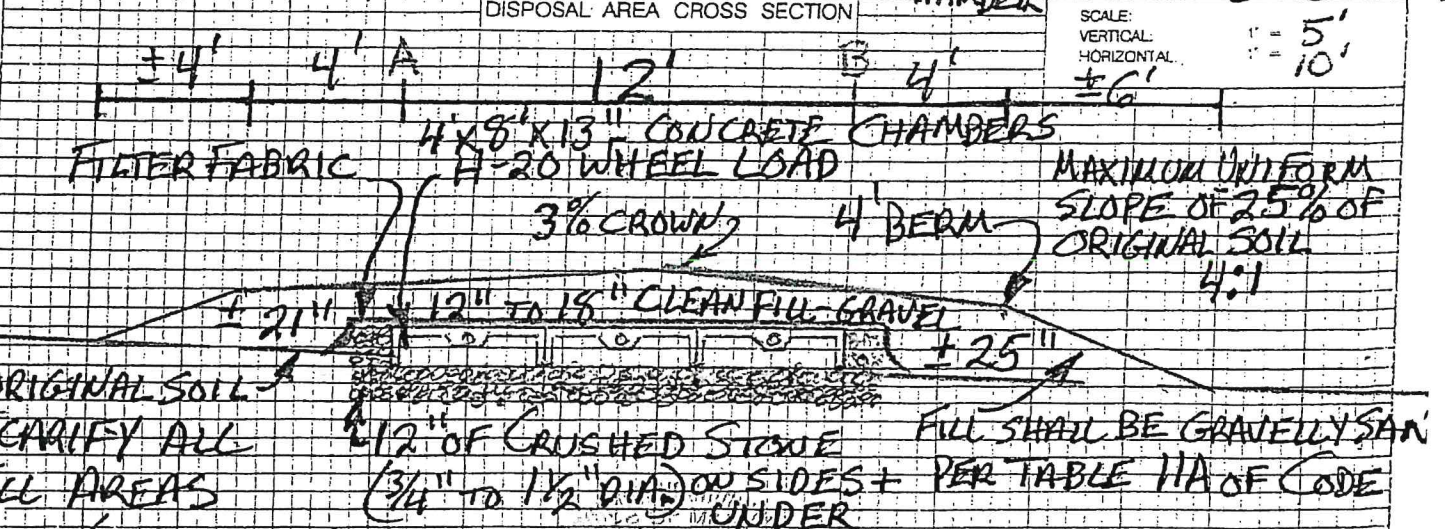 DISPOSAL AREA CROSS SECTION
SCALE:
VERTICAL: 1" = 5'
HORIZONTAL 1" = 10'
±4' 4' A 12' B 4' ±6'
4'X8'X13" CONCRETE CHAMBERS
H-20 WHEEL LOAD
FILTER FABRIC
3% CROWN
4' BERM
MAXIMUM UNIFORM
SLOPE OF 25% OF
ORIGINAL SOIL
4:1
± 21"
12" TO 18" CLEAN FILL-GRAVEL
± 25"
ORIGINAL SOIL
SCARIFY ALL
AREAS
12" OF CRUSHED STONE
(3/4" TO 1 1/2" DIA.) ON SIDES +
UNDER
FILL SHALL BE GRAVELLY SAN
PER TABLE 11A OF CODE